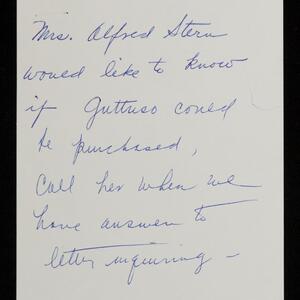 Mrs. Alfred Stern
would like to know
if Guttuso could
be purchased,
Call her when we
have answer to
letter inquiring –